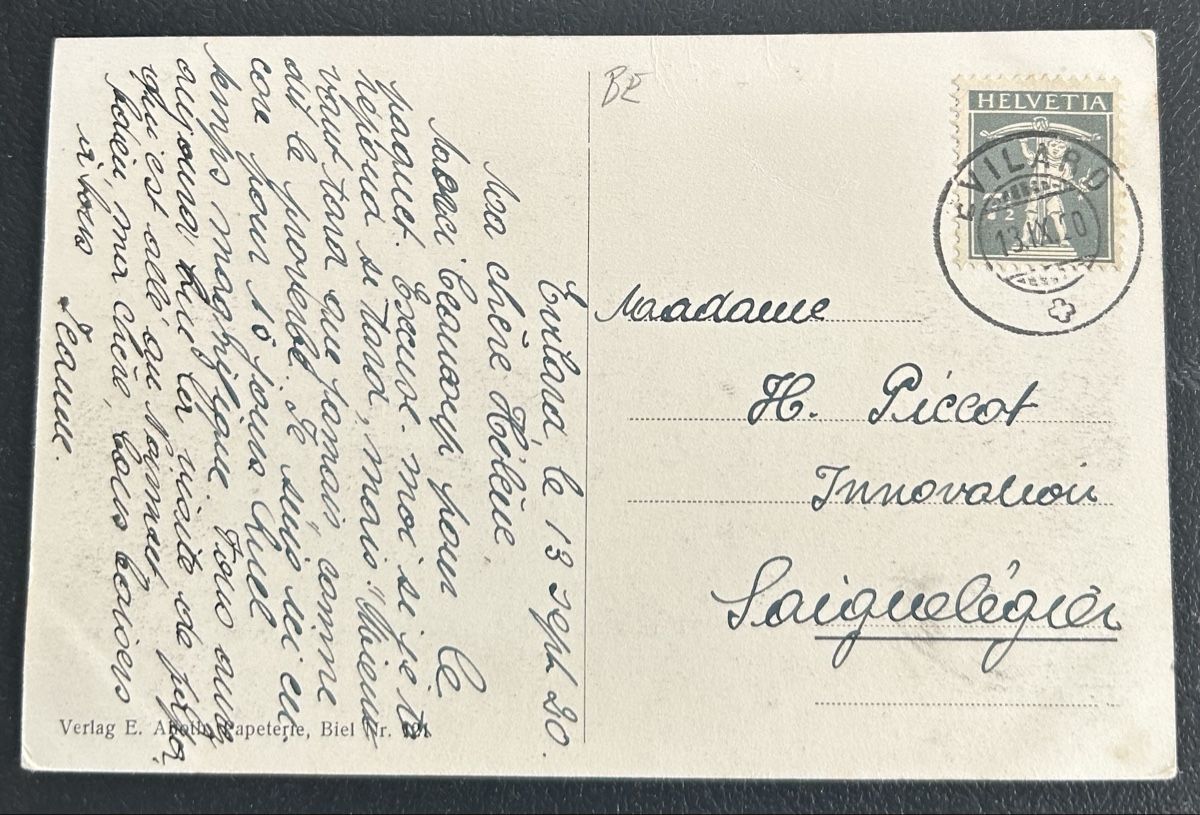 Evilard, le 13 Sept. 20.
Ma chère Hélène
Merci beaucoup pour le
paquet. Excuse-moi si je te
répond si tard, mais "Mieux
vaut tard que jamais" comme
dit le proverbe. Je suis ici en-
core pour 10 jours. Quel
temps magnifique. Nous avons
aujourd'hui la visite de
qui est allé au Nirmont
ma chère, bons baisers
à tous
Jeanne.
BE
HELVETIA
EVILARD
13.IX.20
Madame
H. Piccot
Innovation
Saignelégier
Verlag E. Papeterie, Biel Nr. 101